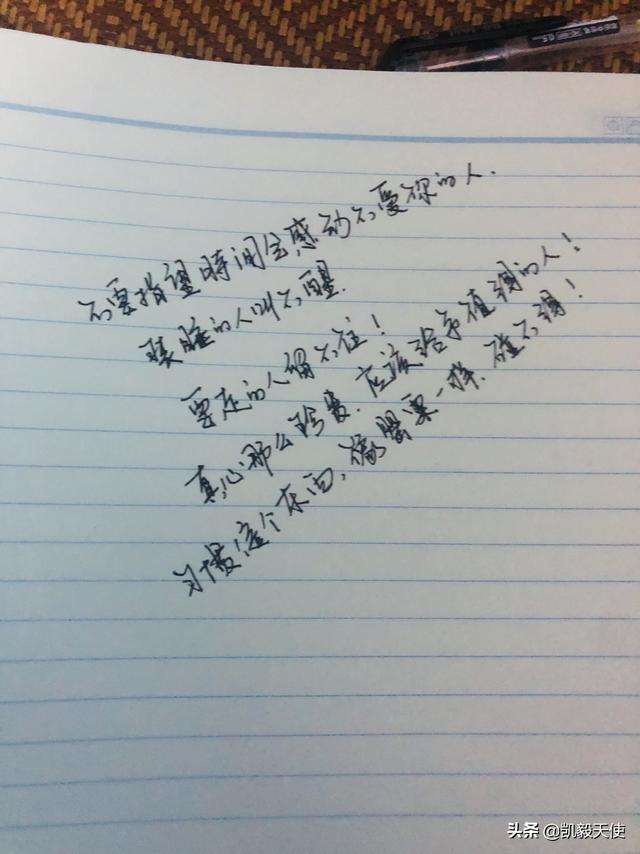 不要指望時间会感动不爱你的人.
装睡的人叫不醒.
要走的人留不住!
真心那么珍贵.应该给予值得的人!
习惯这个东西,像罂粟一样.碰不得!
头条 @凯毅天使